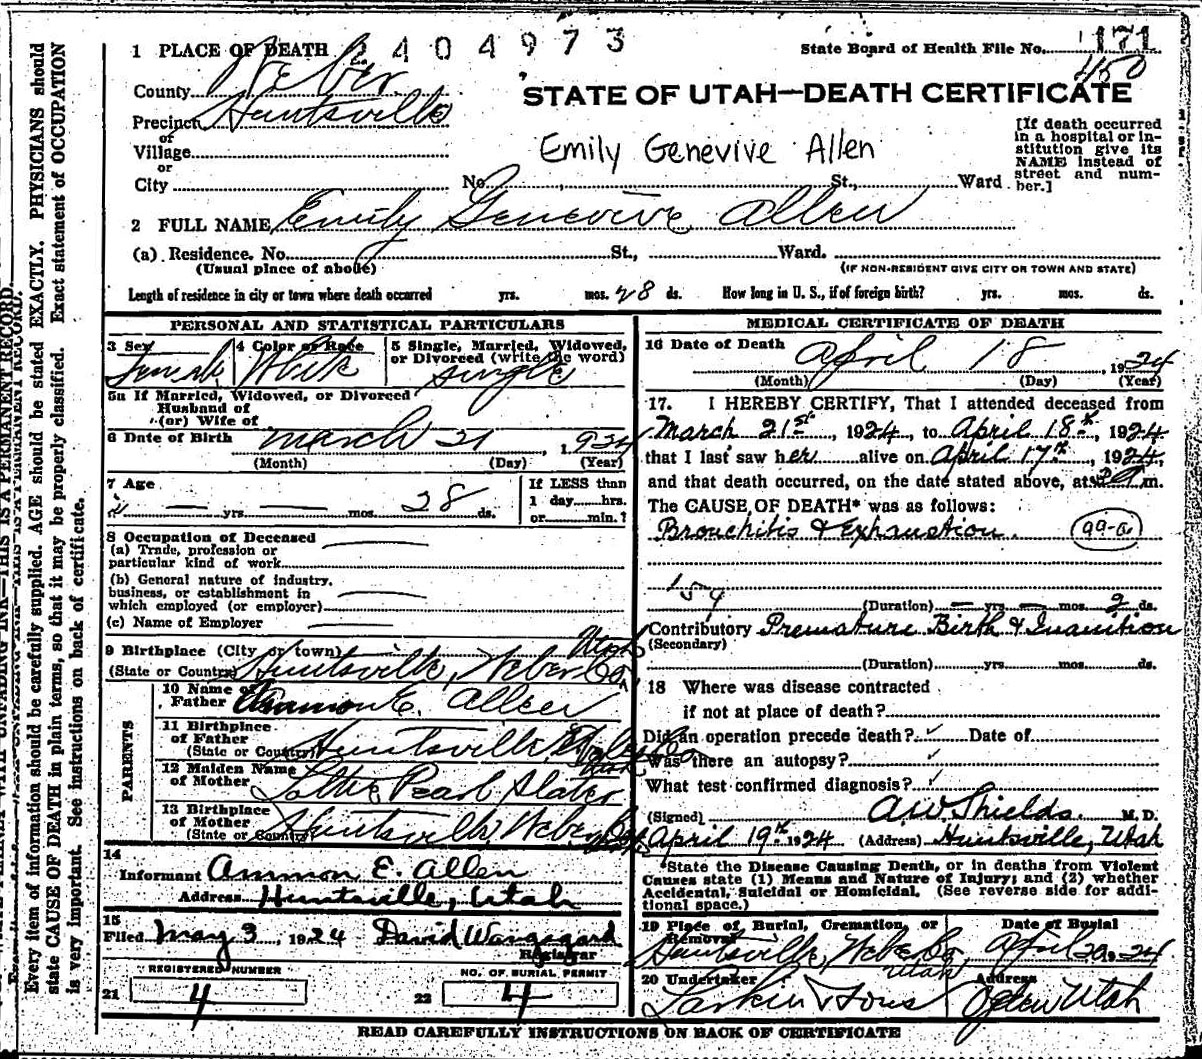 1 PLACE OF DEATH 2404973
State Board of Health File No. 171
450
County Weber
Precinct Huntsville
or
Village
or
City
No. St., Ward
STATE OF UTAH—DEATH CERTIFICATE
[If death occurred
in a hospital or in-
stitution give its
NAME instead of
street and num-
ber.]
Emily Genevive Allen
2 FULL NAME Emily Genevive Allen
(a) Residence. No. St., Ward.
(Usual place of abode) (IF NON-RESIDENT GIVE CITY OR TOWN AND STATE)
Length of residence in city or town where death occurred yrs. mos. 28 ds. How long in U. S., if of foreign birth? yrs. mos. ds.
PERSONAL AND STATISTICAL PARTICULARS
3 Sex Female
4 Color or Race White
5 Single, Married, Widowed,
or Divorced (write the word)
single
5a If Married, Widowed, or Divorced
Husband of
(or) Wife of
6 Date of Birth March 21, 1924
(Month) (Day) (Year)
7 Age
— yrs. — mos. 28 ds.
If LESS than
1 day hrs.
or min.?
8 Occupation of Deceased
(a) Trade, profession or
particular kind of work
(b) General nature of industry,
business, or establishment in
which employed (or employer)
(c) Name of Employer
9 Birthplace (City or town) Utah
(State or Country) Huntsville, Weber Co.
PARENTS
10 Name of
Father Ammon E. Allen
11 Birthplace
of Father
(State or Country) Huntsville Weber Co
Utah
12 Maiden Name
of Mother Lottie Pearl Slater
13 Birthplace
of Mother
(State or Country) Huntsville, Weber Co.
Utah
14
Informant Ammon E. Allen
Address Huntsville, Utah
15
Filed May 3, 1924 David Wangsgard
Registrar
REGISTERED NUMBER
21 4
NO. OF BURIAL PERMIT
22 4
MEDICAL CERTIFICATE OF DEATH
16 Date of Death April 18 1924
(Month) (Day) (Year)
17. I HEREBY CERTIFY, That I attended deceased from
March 21st, 1924, to April 18th, 1924
that I last saw her alive on April 17th, 1924,
and that death occurred, on the date stated above, at m.
The CAUSE OF DEATH* was as follows:
Bronchitis & Exhaustion. 99-a
159
(Duration) — yrs. — mos. 2 ds.
Contributory Premature Birth & Inanition
(Secondary)
(Duration) yrs. mos. ds.
18 Where was disease contracted
if not at place of death?
Did an operation precede death? ✓ Date of
Was there an autopsy? ✓
What test confirmed diagnosis? ✓
(Signed) AW Shields. M. D.
April 19th 1924 (Address) Huntsville, Utah
*State the Disease Causing Death, or in deaths from Violent
Causes state (1) Means and Nature of Injury; and (2) whether
Accidental, Suicidal or Homicidal. (See reverse side for addi-
tional space.)
19 Place of Burial, Cremation, or
Removal
Huntsville, Weber Co,
Utah
Date of Burial
April 20 1924
20 Undertaker
Larkin & Sons
Address
Ogden Utah
READ CAREFULLY INSTRUCTIONS ON BACK OF CERTIFICATE
Every item of information should be carefully supplied. AGE should be stated EXACTLY. PHYSICIANS should
state CAUSE OF DEATH in plain terms, so that it may be properly classified. Exact statement of OCCUPATION
is very important. See instructions on back of certificate.
THIS IS A PERMANENT RECORD.